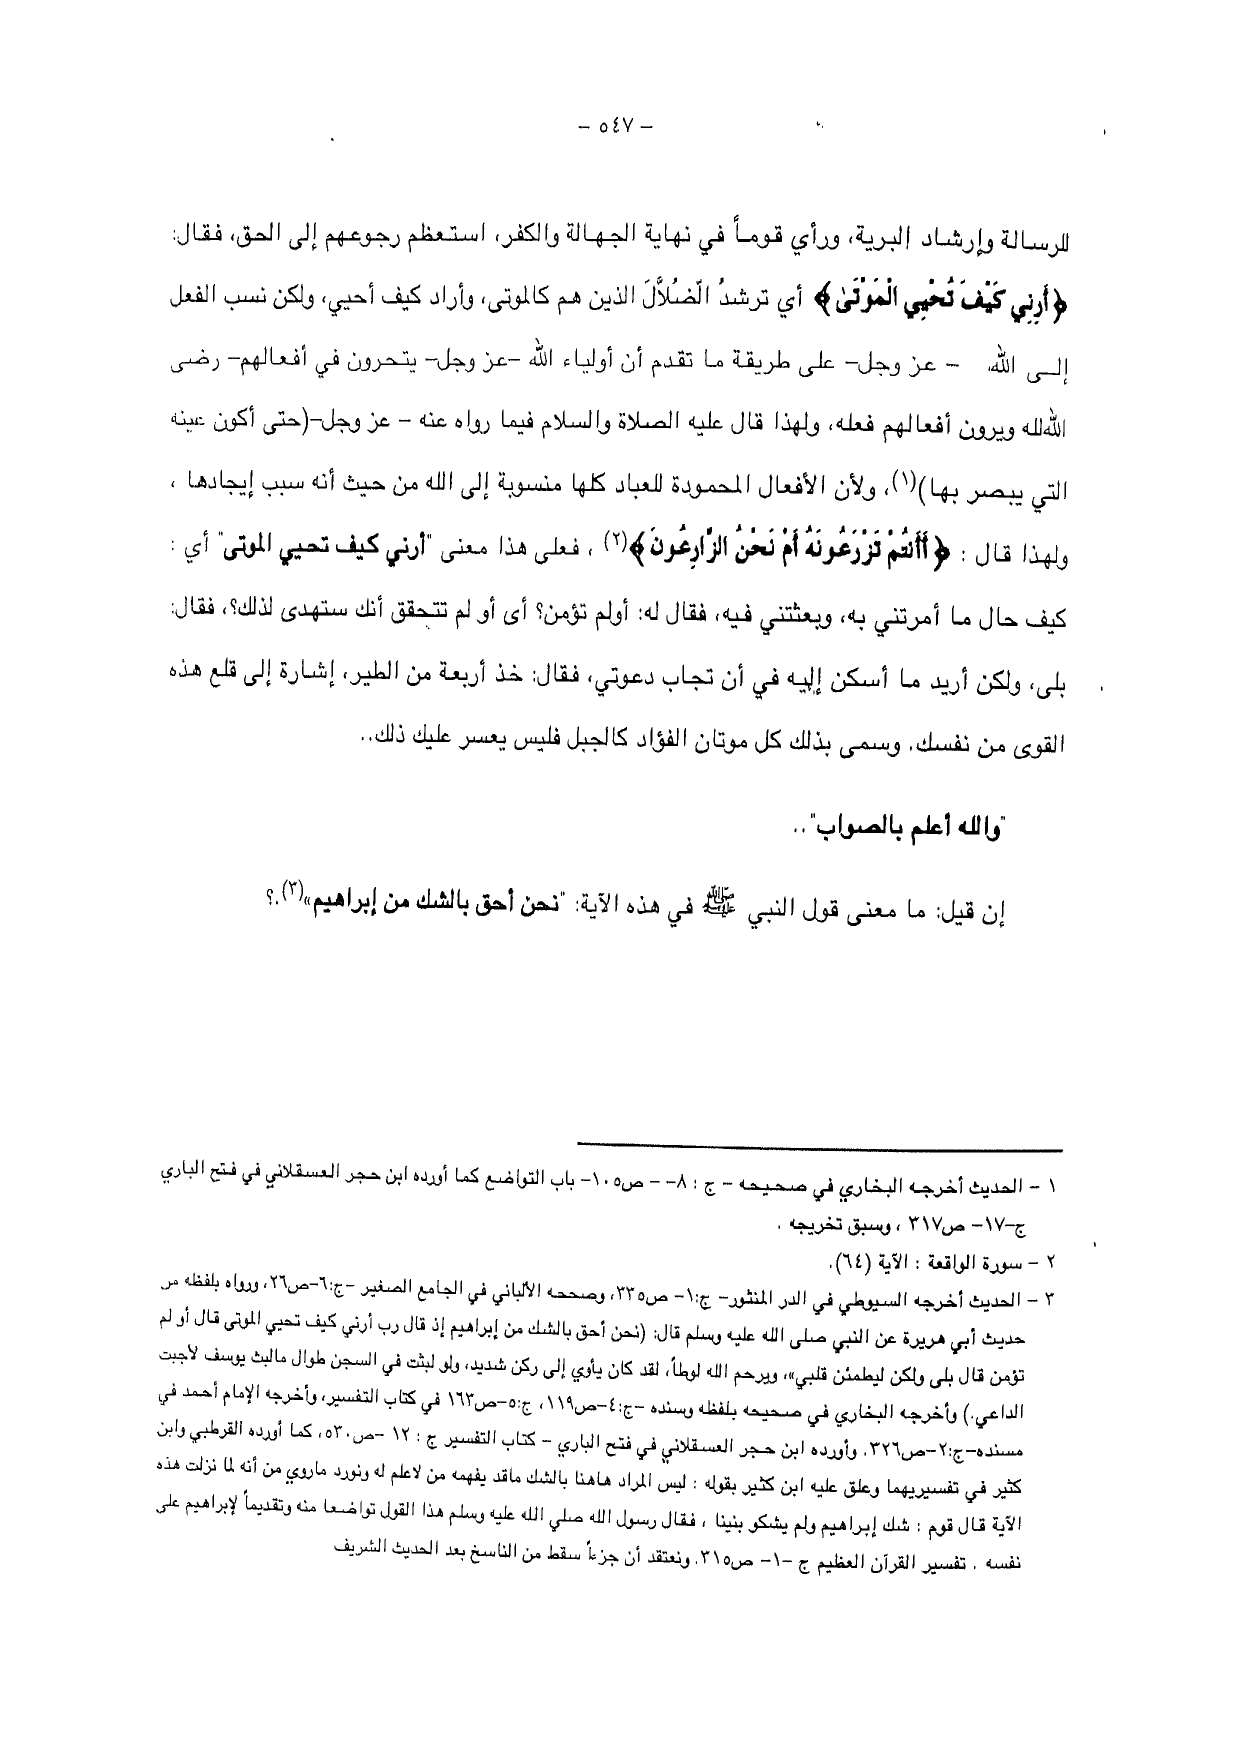 – ٥٤٧ –
للرسالة وإرشاد البرية، ورأي قوماً في نهاية الجهالة والكفر، استعظم رجوعهم إلى الحق، فقال:
﴿أَرِنِي كَيْفَ تُحْيِي الْمَوْتَىٰ﴾ أي ترشدُ الّضُلاَّلَ الذين هم كالموتى، وأراد كيف أحيي، ولكن نسب الفعل
إلـى الله – عز وجل– على طريقة ما تقدم أن أولياء الله –عز وجل– يتحرون في أفعالهم– رضى
الله لله ويرون أفعالهم فعله، ولهذا قال عليه الصلاة والسلام فيما رواه عنه – عز وجل–(حتى أكون عينه
التي يبصر بها)(١)، ولأن الأفعال المحمودة للعباد كلها منسوبة إلى الله من حيث أنه سبب إيجادها ،
ولهذا قال : ﴿أَأَنتُمْ تَزْرَعُونَهُ أَمْ نَحْنُ الزَّارِعُونَ﴾(٢) ، فعلى هذا معنى "أرني كيف تحيي الموتى" أي :
كيف حال ما أمرتني به، وبعثتني فيه، فقال له: أولم تؤمن؟ أى أو لم تتحقق أنك ستهدى لذلك؟، فقال:
بلى، ولكن أريد ما أسكن إليه في أن تجاب دعوتي، فقال: خذ أربعة من الطير، إشارة إلى قلع هذه
القوى من نفسك. وسمى بذلك كل موتان الفؤاد كالجبل فليس يعسر عليك ذلك..
"والله أعلم بالصواب"..
إن قيل: ما معنى قول النبي ﷺ في هذه الآية: "نحن أحق بالشك من إبراهيم"(٣).؟
١ – الحديث أخرجه البخاري في صحيحه – ج : ٨– – ص١٠٥– باب التواضع كما أورده ابن حجر العسقلاني في فتح الباري
ج–١٧– ص٣١٧ ، وسبق تخريجه .
٢ – سورة الواقعة : الآية (٦٤).
٣ – الحديث أخرجه السيوطي في الدر المنثور– ج:١– ص٣٣٥، وصححه الألباني في الجامع الصغير –ج:٦–ص٢٦، ورواه بلفظه من
حديث أبي هريرة عن النبي صلى الله عليه وسلم قال: (نحن أحق بالشك من إبراهيم إذ قال رب أرني كيف تحيي الموتى قال أو لم
تؤمن قال بلى ولكن ليطمئن قلبي»، ويرحم الله لوطاً، لقد كان يأوي إلى ركن شديد، ولو لبثت في السجن طوال مالبث يوسف لأجبت
الداعي.) وأخرجه البخاري في صحيحه بلفظه وسنده –ج:٤–ص١١٩، ج:٥–ص١٦٣ في كتاب التفسير، وأخرجه الإمام أحمد في
مسنده–ج:٢–ص٣٢٦. وأورده ابن حجر العسقلاني في فتح الباري – كتاب التفسير ج : ١٢ –ص٥٣٠، كما أورده القرطبي وابن
كثير في تفسيريهما وعلق عليه ابن كثير بقوله : ليس المراد هاهنا بالشك ماقد يفهمه من لاعلم له ونورد ماروي من أنه لما نزلت هذه
الآية قال قوم : شك إبراهيم ولم يشكو بنينا ، فقال رسول الله صلي الله عليه وسلم هذا القول تواضعا منه وتقديماً لإبراهيم على
نفسه . تفسير القرآن العظيم ج –١– ص٣١٥. ونعتقد أن جزءاً سقط من الناسخ بعد الحديث الشريف